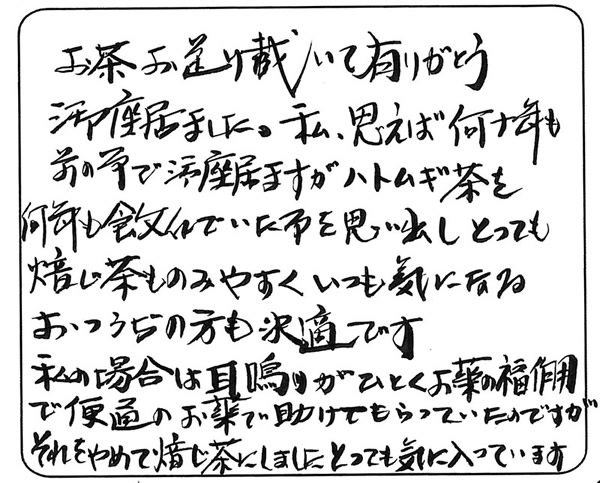 お茶お送り戴いて有りがとう
御座居ました。私、思えば何十年も
前の事で御座居ますがハトムギ茶を
何年も飲んでいた事を思い出しとっても
焙じ茶ものみやすくいつも気になる
おつうじの方も快適です
私の場合は耳鳴りがひどくお薬の福作用
で便通のお薬で助けてもらっていたのですが
それをやめて焙じ茶にしましたとっても気に入っています